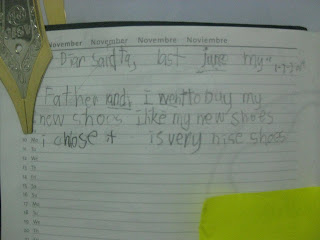 November November Novembre Noviembre
Dear Saida, last june my
Father and i went to buy my
new shoes i like my new shoes
i chose it is very nise shoes